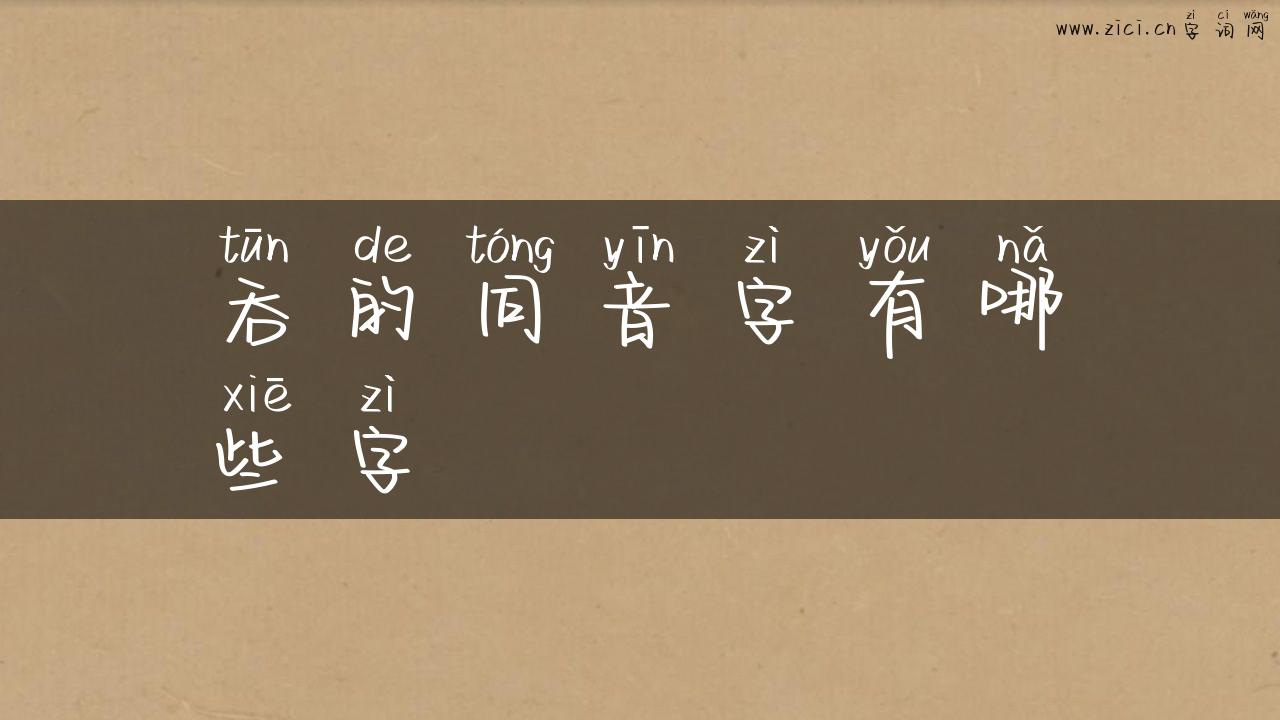 zì cí wǎng
www.zici.cn 字 词 网
tūn de tóng yīn zì yǒu nǎ
吞 的 同 音 字 有 哪
xiē zì
些 字